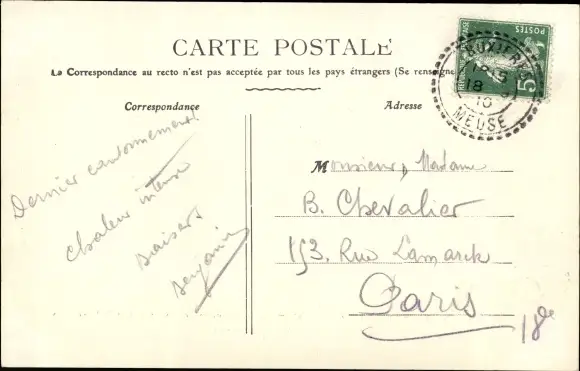 CARTE POSTALE
La Correspondance au recto n'est pas acceptée par tous les pays étrangers (Se renseigne
Correspondance
Adresse
POSTES
5
MEUSE
18
10
Dernier cantonnement
Chaleur intense
Baisers
Benjamin
Monsieur, Madame
B. Chevalier
153. Rue Lamarck
Paris
18e